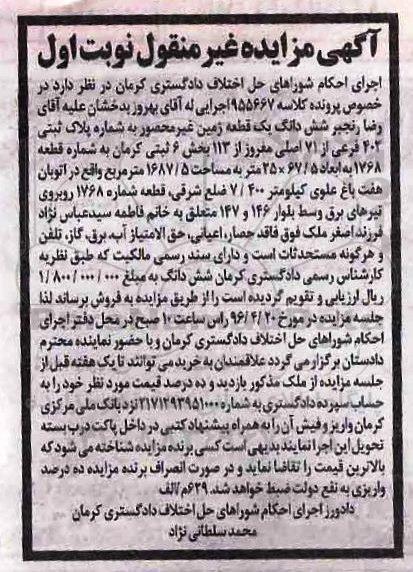 آگهی مزایده غیر منقول نوبت اول
اجرای احکام شوراهای حل اختلاف دادگستری کرمان در نظر دارد در
خصوص پرونده کلاسه ۹۵۵۶۶۷ اجرایی له آقای بهروز بدخشان علیه آقای
رضا رنجبر شش دانگ یک قطعه زمین غیرمحصور به شماره پلاک ثبتی
۴۰۲ فرعی از ۷۱ اصلی مفروز از ۱۱۳ بخش ۶ ثبتی کرمان به شماره قطعه
۱۷۶۸ به ابعاد ۶۷/۵ × ۲۵ متر به مساحت ۱۶۸۷/۵ مترمربع واقع در اتوبان
هفت باغ علوی کیلومتر ۷/۴۰۰ ضلع شرقی، قطعه شماره ۱۷۶۸ روبروی
تیرهای برق وسط بلوار ۱۴۶ و ۱۴۷ متعلق به خانم فاطمه سیدعباس نژاد
فرزند اصغر ملک فوق فاقد حصار، اعیانی، حق الامتیاز آب، برق، گاز، تلفن
و هرگونه مستحدثات است و دارای سند رسمی مالکیت که طبق نظریه
کارشناس رسمی دادگستری کرمان شش دانگ به مبلغ ۱/۸۰۰/۰۰۰/۰۰۰
ریال ارزیابی و تقویم گردیده است را از طریق مزایده به فروش برساند لذا
جلسه مزایده در مورخ ۹۶/۴/۲۰ راس ساعت ۱۰ صبح در محل دفتر اجرای
احکام شوراهای حل اختلاف دادگستری کرمان و با حضور نماینده محترم
دادستان برگزار می گردد علاقمندان به خرید می توانند تا یک هفته قبل از
جلسه مزایده از ملک مذکور بازدید و ده درصد قیمت مورد نظر خود را به
حساب سپرده دادگستری به شماره ۲۱۷۱۲۹۳۹۵۱۰۰۰ نزد بانک ملی مرکزی
کرمان واریز و فیش آن را به همراه پیشنهاد کتبی در داخل پاکت درب بسته
تحویل این اجرا نمایند بدیهی است کسی برنده مزایده شناخته می شود که
بالاترین قیمت را تقاضا نماید و در صورت انصراف برنده مزایده ده درصد
واریزی به نفع دولت ضبط خواهد شد. ۶۲۹م/الف
دادورز اجرای احکام شوراهای حل اختلاف دادگستری کرمان
محمد سلطانی نژاد